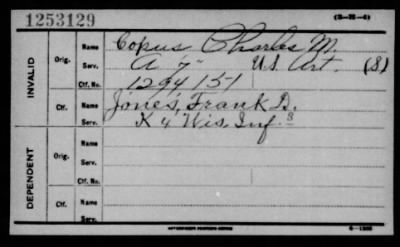 1253129 (3-78-4)
INVALID
Orig. Name Copus Charles M.
Serv. A "7" U.S. Art. (S)
Ctf. No. 1294151
Ctf. Name Jones, Frank D.
Serv. K 4 Wis. Inf. S
DEPENDENT
Orig. Name
Serv.
Ctf. No.
Ctf. Name
Serv.